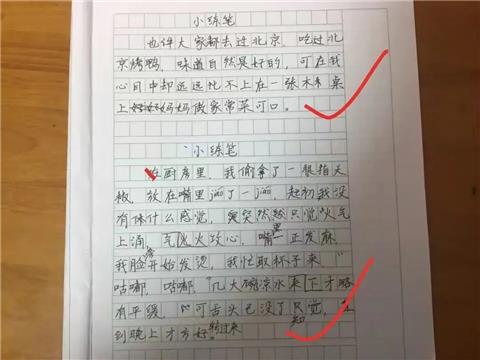 小练笔
也许大家都去过北京，吃过北
京烤鸭，味道自然是好的，可在我
心目中却远远比不上在一张木桌
上妈妈做家常菜可口。
小练笔
在厨房里，我偷拿了一根指天
椒，放在嘴里jiáo了一jiáo，起初我没
有什么感觉，突然只觉火气
上涌，气火攻心，嘴里正发麻，
我脸开始发烫，我忙取杯子来，"
咕嘟，咕嘟，"几大碗凉水来下才略
有平缓，可舌头已没了知觉，
到晚上才方好转过来